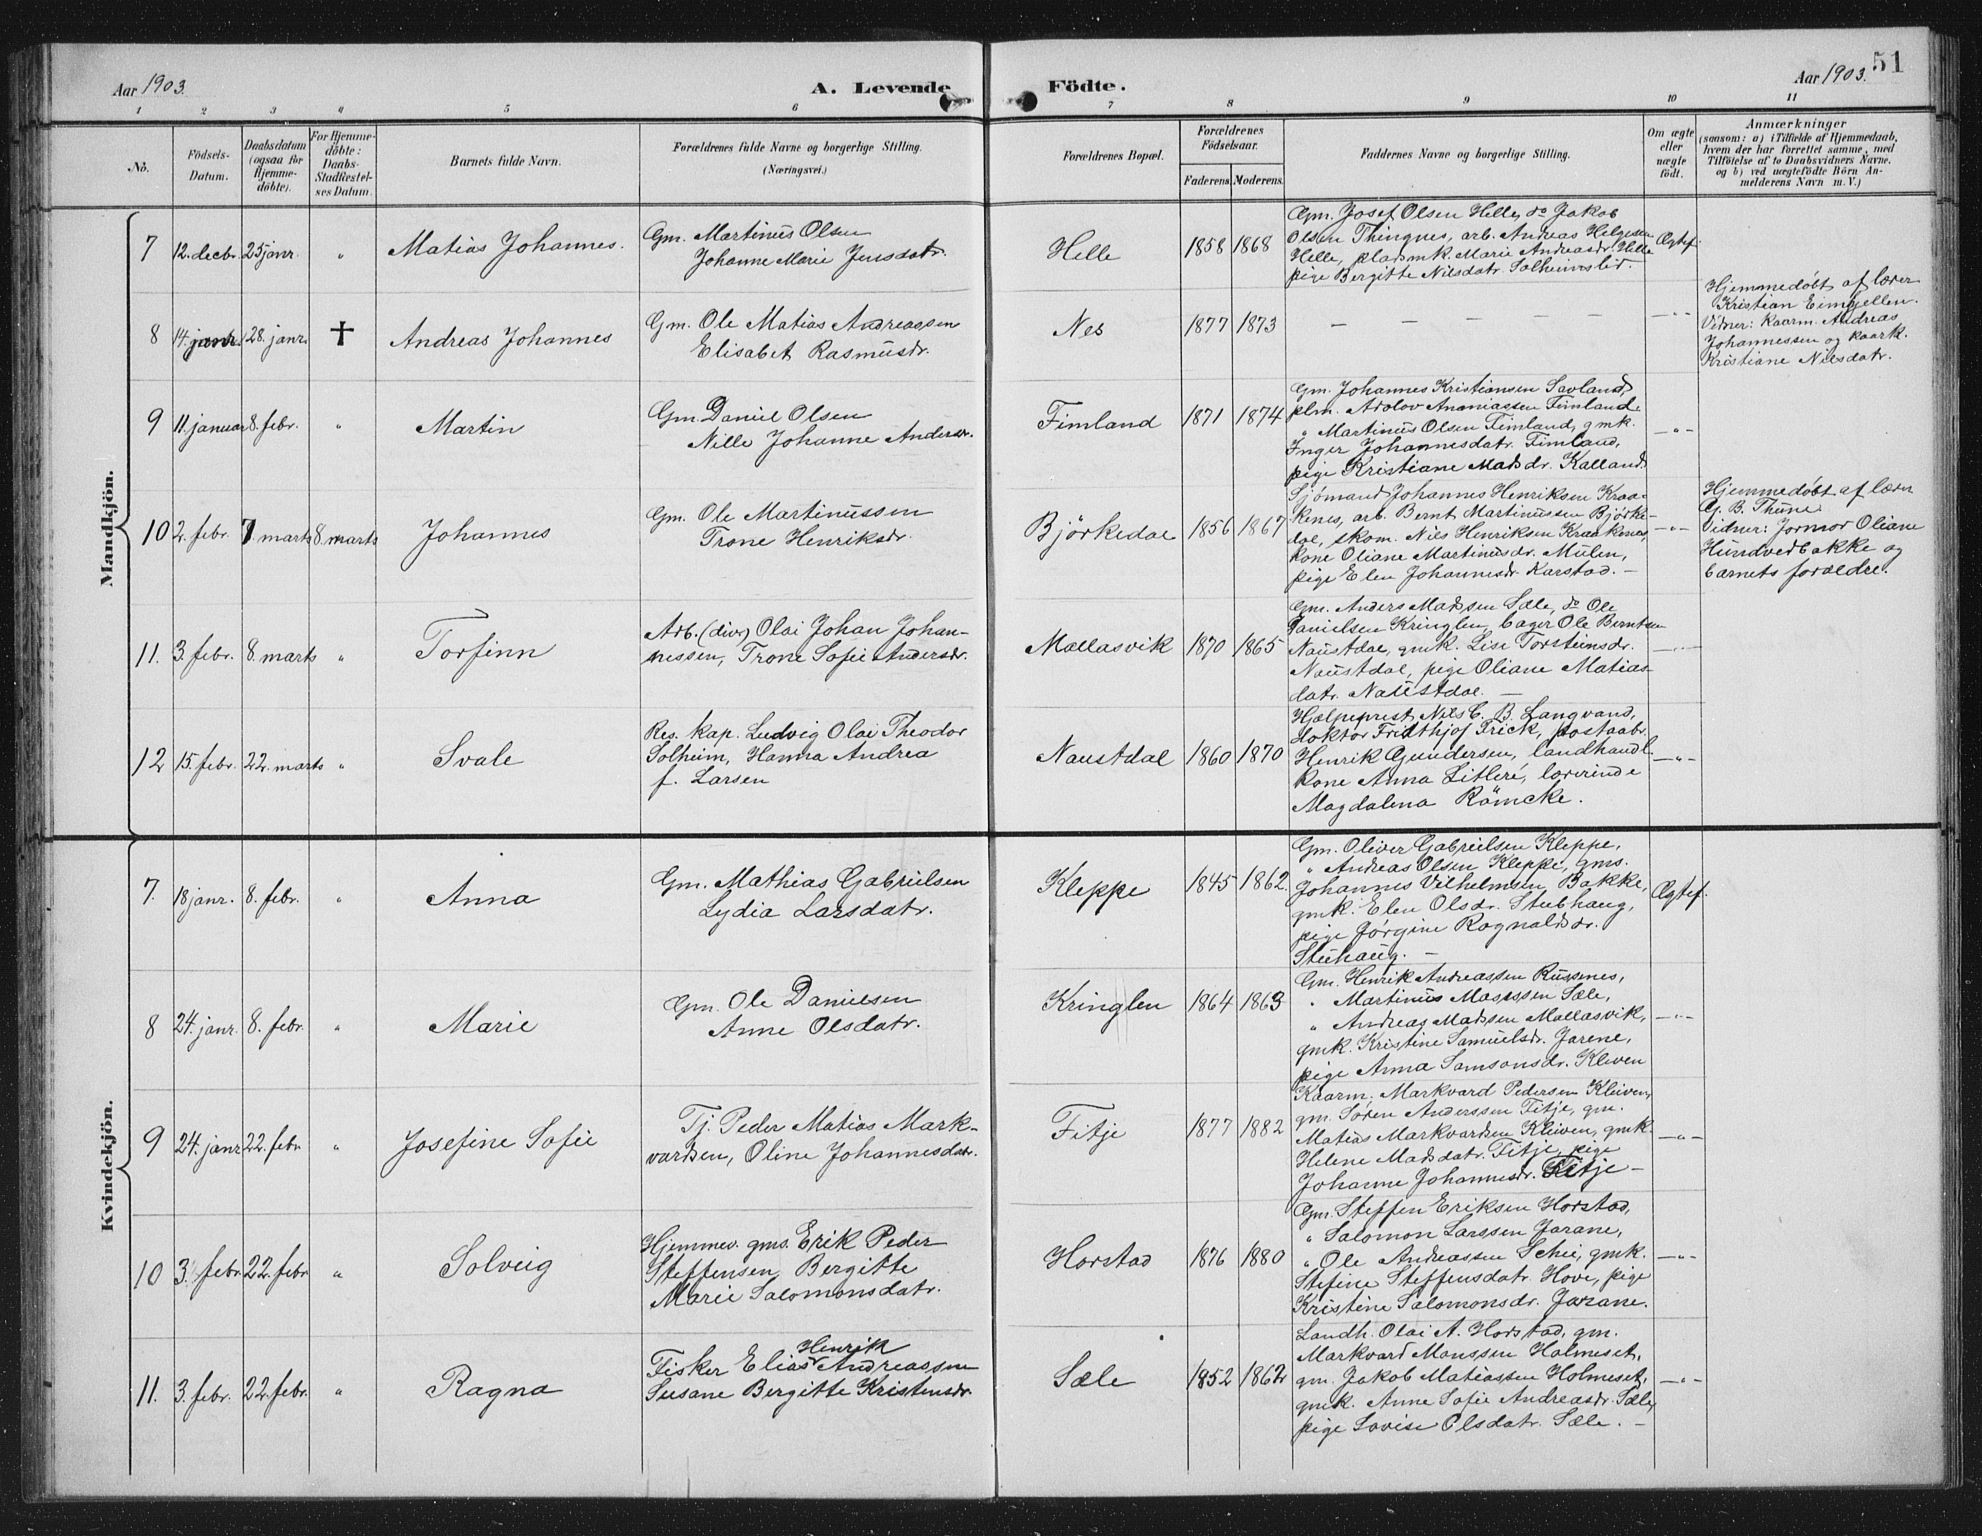 Aar 1903.
A. Levende Födte.
Aar 1903.
51
1 2 3 4 5 6 7 8 9 10 11
No.
Födsels-
Datum.
Daabsdatum
(ogsaa for
Hjemme-
döbte).
For Hjemme-
döbte:
Daabs-
Stadfæstel-
ses Datum.
Barnets fulde Navn.
Forældrenes fulde Navne og borgerlige Stilling.
(Næringsvei.)
Forældrenes Bopæl.
Forældrenes
Födselsaar.
Faderens. Moderens.
Faddernes Navne og borgerlige Stilling.
Om ægte
eller
uægte
födt.
Anmærkninger
(saasom: a) i Tilfælde af Hjemmedaab,
hvem der har forrettet samme, med
Tilföielse af to Daabsvidners Navne,
og b) ved uægtefödte Börn An-
melderens Navn m. V.)
Mandkjön.
7 12. decbr. 25 janr. " Matias Johannes.
Gm. Martinus Olsen
Johanne Marie Jensdatr.
Helle 1858 1868
Gm. Josef Olsen Helle, do Jakob
Olsen Thingnes, arb. Andreas Helgesen
Helle, pladsmk. Marie Andreasdr. Helle
pige Bergitte Nilsdatr. Solheimslid.
Ægtef.
8 14. janr. 28. janr. † Andreas Johannes
Gm. Ole Matias Andreassen
Elisabet Rasmusdr.
Nes 1877 1873 — — — — — —"—
Hjemmedøbt af lærer
Kristian Eimhjellen.
Vidner: Kaarm. Andreas
Johannessen og kaark.
Kristiane Nilsdatr.
9 11. januar 8. febr. " Martin
Gm. Daniel Olsen
Nille Johanne Andersdr.
Fimland 1871 1874
Gm. Johannes Kristiansen Savland,
plm. Adolov Ananiassen Fimland
" Martinus Olsen Fimland, gmk.
Inger Johannesdatr. Fimland,
pige Kristiane Madsdr. Kalland
—"—
10 2. febr. 7. marts 8 marts Johannes
Gm. Ole Martinussen
Trone Henriksdr.
Bjørkedal 1856 1867
Sjømand Johannes Henriksen Kraa-
kenes, arb. Bernt Martinussen Bjørke-
dal, skom. Nils Henriksen Kraakenes,
kone Oliane Martinusdr. Mulen,
pige Elen Johannesdr. Karstad. —
—"—
Hjemmedøbt af lærer
G. B. Thune
Vidner: Jormor Oliane
Hundvedbakke og
barnets forældre.
11. 3. febr. 8. marts " Torfinn
Arb. (div) Olai Johan Johan-
nessen, Trone Sofie Andersdr.
Mallasvik 1870 1865
Gm. Anders Madsen Sæle, do Ole
Danielsen Kringlen, bager Ole Berntsen
Naustdal, gmk. Lise Torsteinsdr.
Naustdal, pige Oliane Matias-
datr. Naustdal. —
—"—
12 15. febr. 22. marts " Svale
Res. kap. Ludvig Olai Theodor
Solheim, Hanna Andrea
f. Larsen
Naustdal 1860 1870
Hjælpeprest Nils C. B. Langvand,
doktor Fridthjof Frick, postaabr.
Henrik Gundersen, landhandl.
kone Anna Litlere, lærerinde
Magdalena Römcke.
—"—
Kvindekjön.
7. 18 janr. 8. febr. " Anna
Gm. Mathias Gabrielsen
Lydia Larsdatr.
Kleppe 1845 1862.
Gm. Oliver Gabrielsen Kleppe,
" Andreas Olsen Kleppe, gms.
Johannes Vilhelmsen Bakke,
gmk. Elen Olsdr. Stubhaug,
pige Jørgine Ragnaldsdr.
Stuhaug. —
Ægtef.
8 24. janr. 8. febr. " Marie
Gm. Ole Danielsen
Anne Olsdatr.
Kringlen 1864 1863
Gm. Henrik Andreassen Rusnes,
" Martinus Mosessen Sæle,
" Andreas Madsen Mallasvik,
gmk. Kristine Samuelsdr. Jarene,
pige Anna Samsonsdr. Kleven
—"—
9 24. janr 22. febr " Josefine Sofie
Tj. Peder Matias Mark-
vardsen, Oline Johannesdatr.
Fitje 1877 1882
Kaarm. Markvard Pedersen Kleiven,
gm. Søren Anderssen Fitje, gm.
Matias Markvardsen Kleiven, gmk
Helene Madsdatr. Fitje, pige
Johanne Johannesdr. Fitje —
—"—
10 3. febr 22. febr " Solveig
Hjemmev. gms. Erik Peder
Steffensen, Bergitte
Marie Salomonsdatr.
Horstad 1876 1880
Gm. Steffen Eriksen Horstad,
" Salomon Larssen Jarane,
" Ole Andreassen Schei, gmk.
Stefine Steffensdatr. Hove, pige
Kristine Salomonsdr. Jarane.
—"—
11. 3. febr. 22. febr. " Ragna
Henrik
Fisker Elias Andreassen
Susane Bergitte Kristensdr.
Sæle 1852 1862
Landh. Olai A. Horstad, gm.
Markvard Monssen Holmeset,
gm. Jakob Matiassen Holmeset,
gmk. Anne Sofie Andreasdr. Sæle,
pige Lovise Olsdatr. Sæle. —
—"—